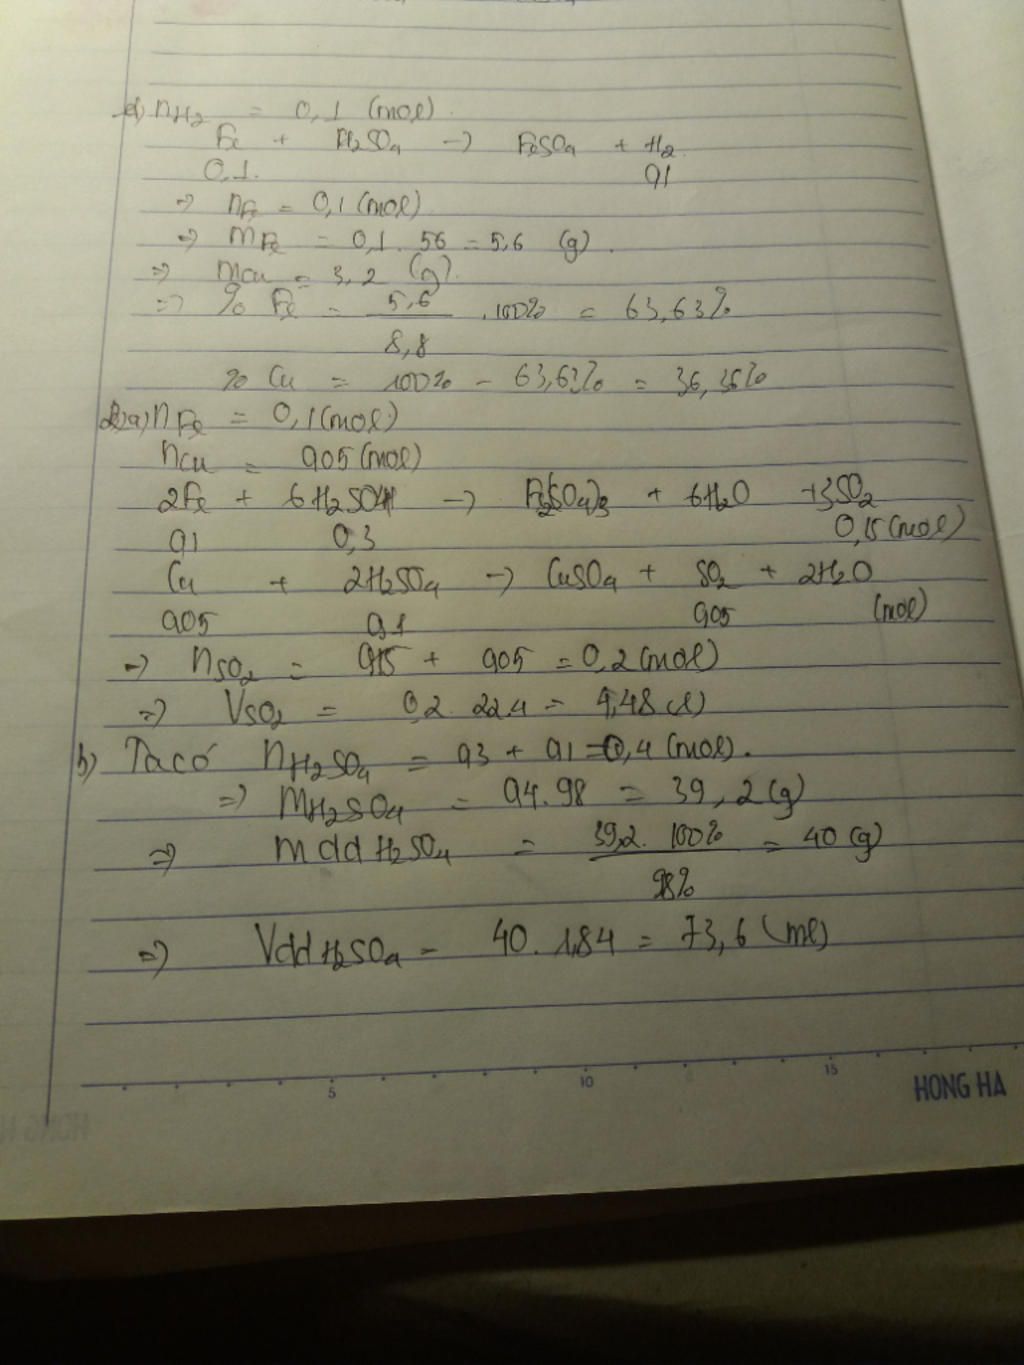 1) nH2 = 0,1 (mol).
Fe + H2SO4 -> FeSO4 + H2
0,1. 0,1
=> nFe = 0,1 (mol)
=> mFe = 0,1 . 56 = 5,6 (g).
=> mCu = 3,2 (g).
=> % Fe = 5,6 / 8,8 . 100% = 63,63%
% Cu = 100% - 63,63% = 36,36%
2) a) nFe = 0,1 (mol)
nCu = 0,05 (mol)
2Fe + 6H2SO4 -> Fe2(SO4)3 + 6H2O + 3SO2
0,1 0,3 0,15 (mol)
Cu + 2H2SO4 -> CuSO4 + SO2 + 2H2O
0,05 0,1 0,05 (mol)
=> nSO2 = 0,15 + 0,05 = 0,2 (mol)
=> VSO2 = 0,2 . 22,4 = 4,48 (l)
b) Ta có nH2SO4 = 0,3 + 0,1 = 0,4 (mol).
=> mH2SO4 = 0,4 . 98 = 39,2 (g)
=> mdd H2SO4 = 39,2 . 100% / 98% = 40 (g)
=> Vdd H2SO4 = 40 . 1,84 = 73,6 (ml)
5 10 15
HONG HA